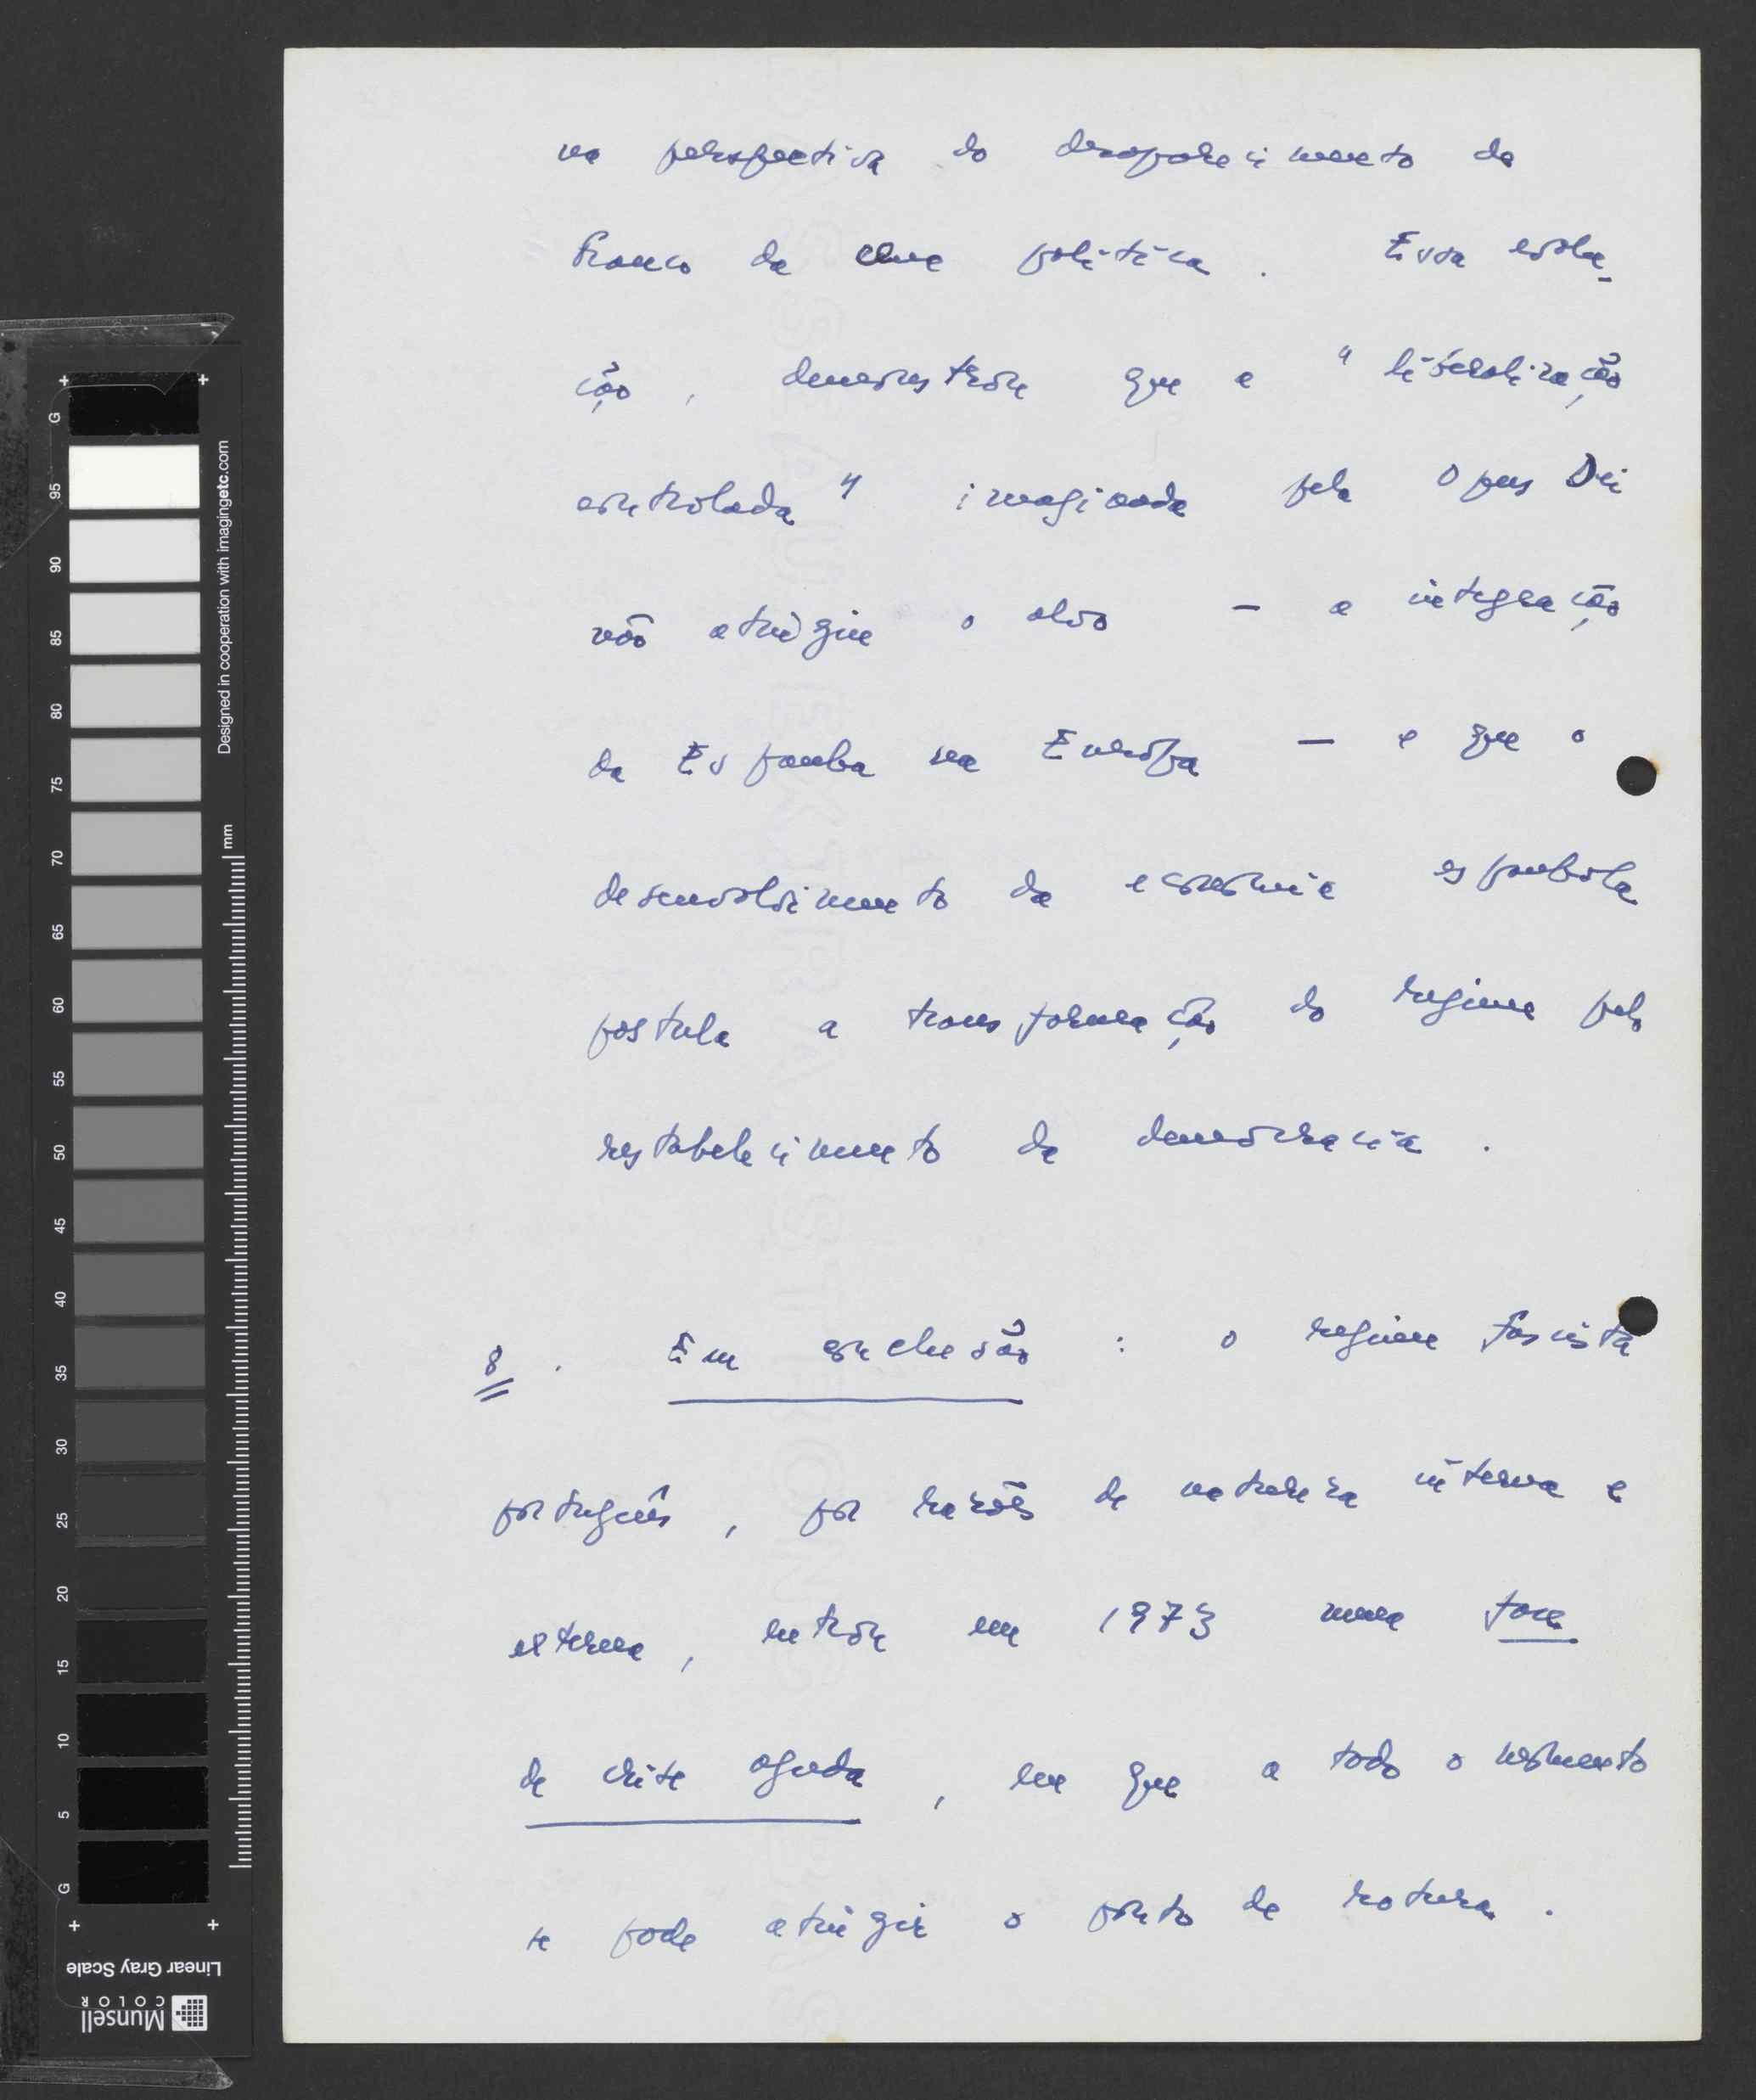 na perspectiva do desaparecimento de
Franco da cena política. Essa evolu-
ção, demonstrou que a "liberalização
controlada" imaginada pela Opus Dei
não atingiu o alvo — a integração
da Espanha na Europa — e que o
desenvolvimento da economia espanhola
postula a transformação do regime pelo
restabelecimento da democracia.
8. Em conclusão: o regime fascista
português, por razões de natureza interna e
externa, entrou em 1973 numa fase
de crise aguda, em que a todo o momento
se pode atingir o ponto de rotura.
Designed in cooperation with imagingetc.com
mm
G
95
90
85
80
75
70
65
60
55
50
45
40
35
30
25
20
15
10
5
G
Linear Gray Scale
Munsell
COLOR